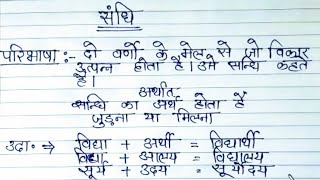 संधि
परिभाषा :- दो वर्णो के मेल से जो विकार
उत्पन्न होता है। उसे सन्धि कहते
है।
अर्थात
सन्धि का अर्थ होता है
जुड़ना या मिलना
उदा० ⇒ विद्या + अर्थी = विद्यार्थी
विद्या + आलय = विद्यालय
सूर्य + उदय = सूर्योदय